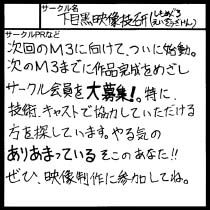 サークル名
下目黒映像技研(しもめぐろえいぞうぎけん)
サークルPRなど
次回のM3に向けて、ついに始動。
次のM3までに作品完成をめざし
サークル会員を大募集!。特に、
技術、キャストで協力していただける
方を探しています。やる気の
ありあまっているそこのあなた!!
ぜひ、映像制作に参加してね。